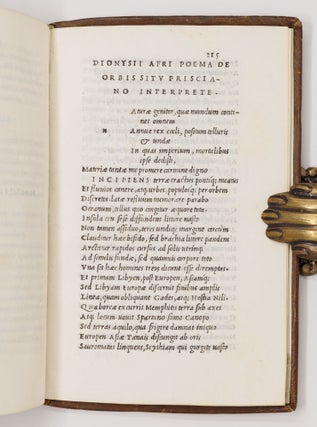 215
DIONYSII AFRI POEMA DE
ORBIS SITV PRISCIA-
NO INTERPRETE.
Aturæ genitor, quæ mundum conti-
net omnem
N Annue rex cœli, positum telluris
& undæ
In quas imperium, mortalibus
ipse dedisti,
Materiæ tantæ me promere carmine digno
INCIPIENS terræ tractus pontiq; meatus
Et fluvios omnere, atq; urbes, populosq; per orbem
Discretos. Latæ restium memorare parabo
Oceanum, tellus quo cingitur æquore toto
Insula ceu sese diffindens littore vasto
Non tamen assiduo, teres undiq; margine circum
Clauditur hæc bifido, sed brachia littere pandens
Arctior rapidos cursus ad solis utrimq;
Ad similis fundæ, sed quamvis corpore toto
Vna sit hæc homines treis dicunt esse diremptos.
Et primam Libyen, post Europen, Asiamq;
Sed Libyam Europe discernit finibus amplis
Linea, quam obliquant Gades, atq; Hostia Nili.
Qua boreæ excurrit Memphitis terra sub axes
Atq; locum vovit Spartano simo Canopo
Sed terras aquilo, qua frigore damnat iniquo
Europen Asiæ Tanais disiungit ab oris
Sauromatas linquens, Scythiam qui gurgite vasto